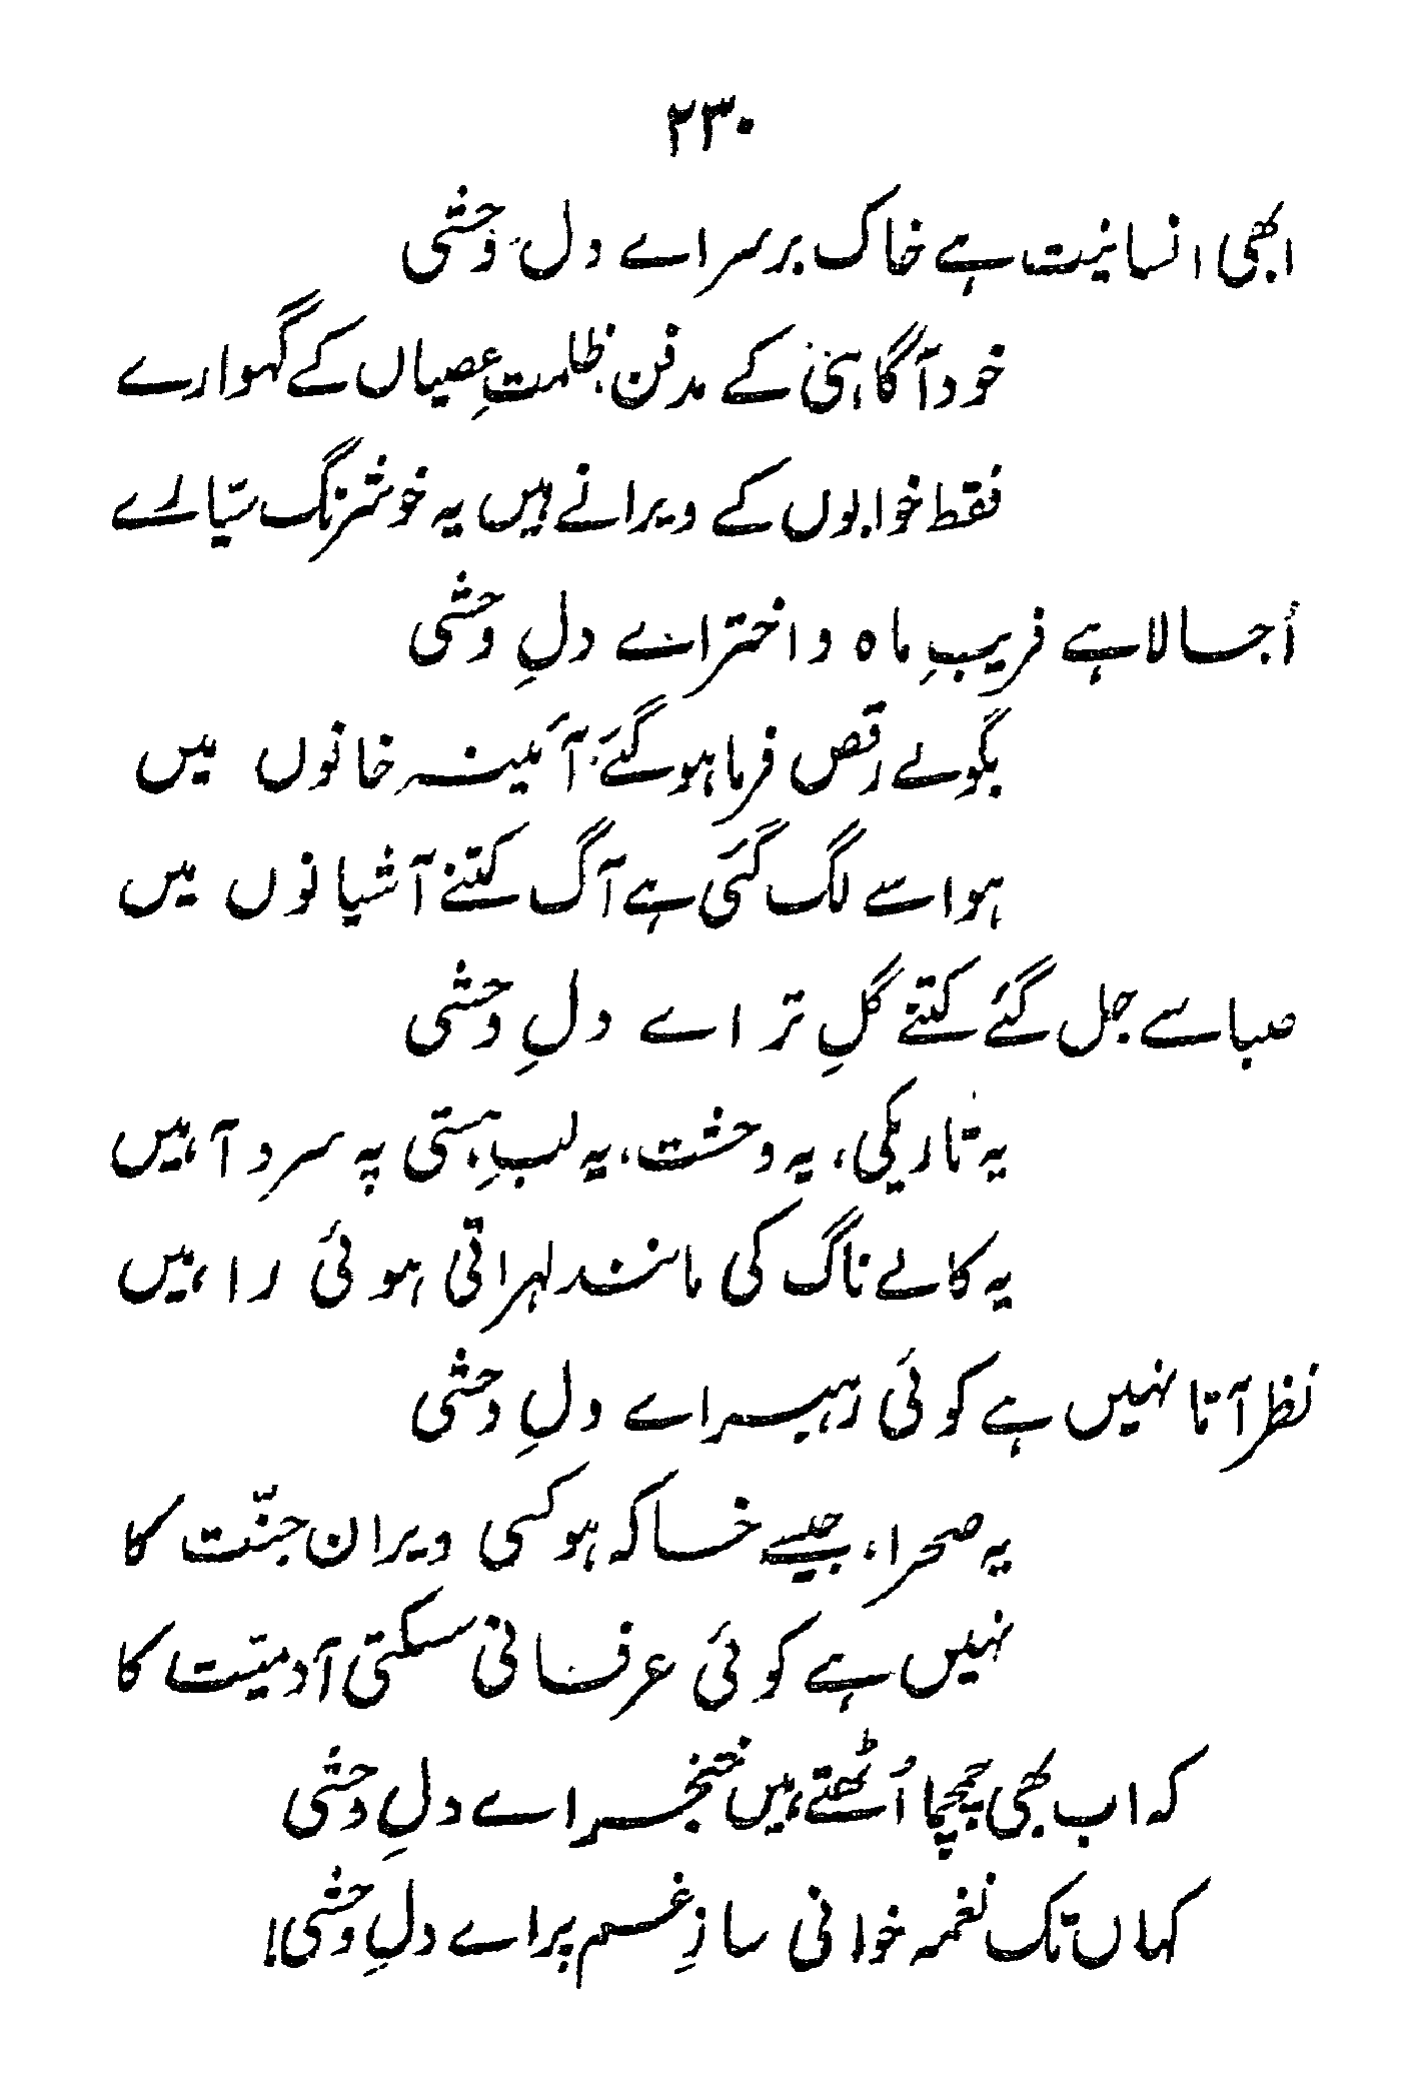 ۲۳۰
ابھی انسانیت ہے خاک بر سر اے دل وحشی
خود آگاہی کے مدفن، ظلمتِ عصیاں کے گہوارے
فقط خوابوں کے ویرانے ہیں یہ خوشرنگ سیّالے
اُجالا ہے فریبِ ماہ و اختر اے دلِ وحشی
بگولے رقص فرما ہو گئے آئینہ خانوں میں
ہوا سے لگ گئی ہے آگ کتنے آشیانوں میں
صبا سے جل گئے کتنے گلِ تر اے دلِ وحشی
یہ تاریکی، یہ وحشت، یہ لبِ ہستی پہ سرد آہیں
یہ کالے ناگ کی مانند لہراتی ہوئی راہیں
نظر آتا نہیں ہے کوئی رہبر اے دلِ وحشی
یہ صحرا، جیسے خاکہ ہو کسی ویران جنّت کا
نہیں ہے کوئی عرفانی سسکتی آدمیّت کا
کہ اب بھی چمچما اُٹھتے ہیں خنجر اے دلِ وحشی
کہاں تک نغمہ خوانی سازِ غم پر اے دلِ وحشی!